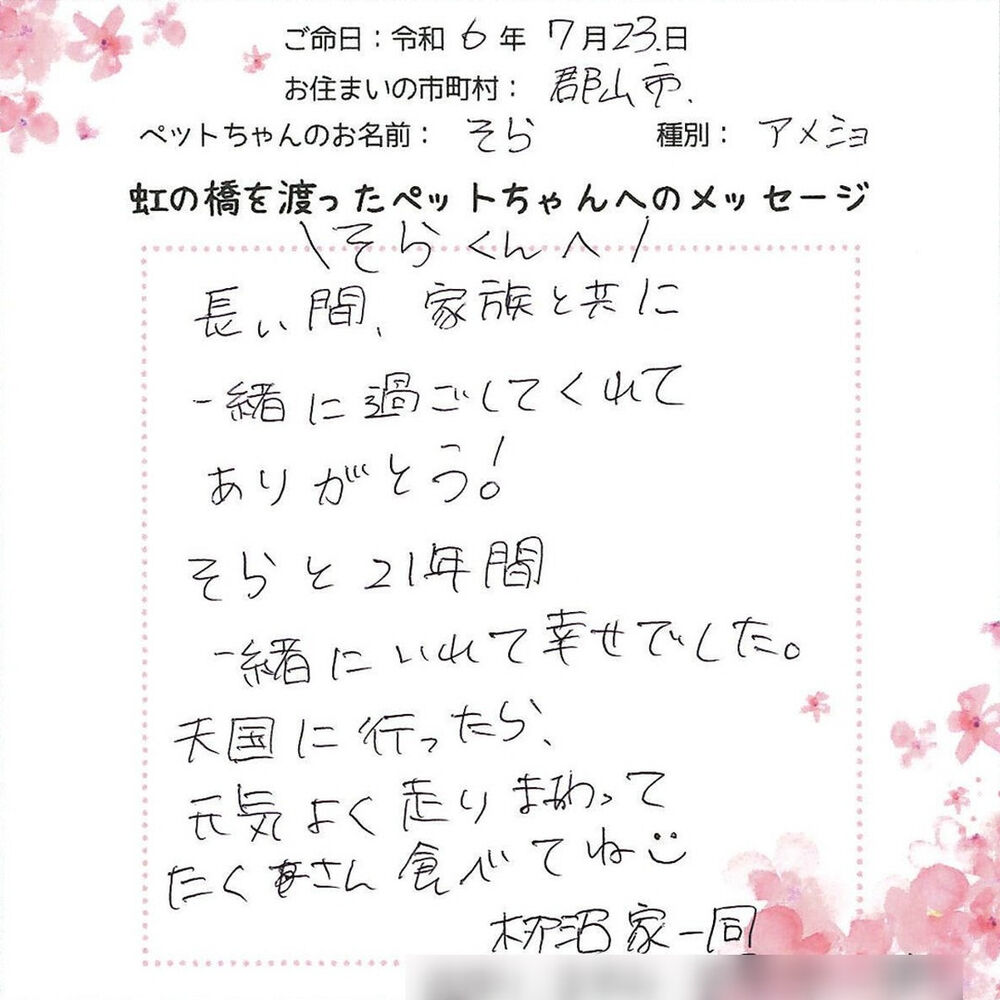 ご命日：令和 6 年 7月23.日
お住まいの市町村： 郡山市.
ペットちゃんのお名前： そら 種別： アメショ
虹の橋を渡ったペットちゃんへのメッセージ
\そらくんへ/
長い間、家族と共に
一緒に過ごしてくれて
ありがとう!
そらと21年間
一緒にいれて幸せでした。
天国に行ったら、
元気よく走りまわって
たくさん食べてね
柳沼家一同